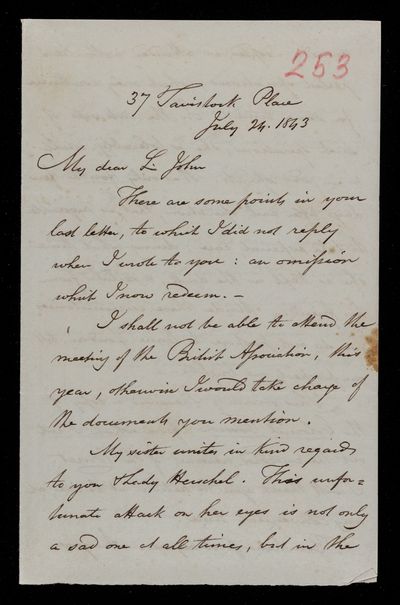 253
37 Tavistock Place
July 24. 1843
My dear Sr John
There are some points in your
last letter, to which I did not reply
when I wrote to you : an omission
which I now redeem. –
I shall not be able to attend the
meeting of the British Association, this
year, otherwise I would take charge of
the documents you mention.
My sister unites in kind regards
to you & Lady Herschel. This unfor=
tunate attack on her eyes is not only
a sad one at all times, but in the